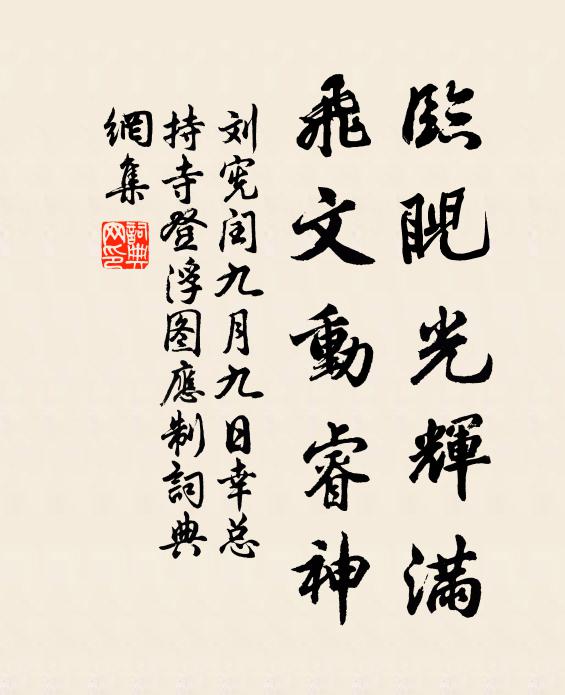 臨睨光輝滿
飛文動睿神
刘宪闰九月九日幸总
持寺登浮图應制詞典
網集
詞典
网印